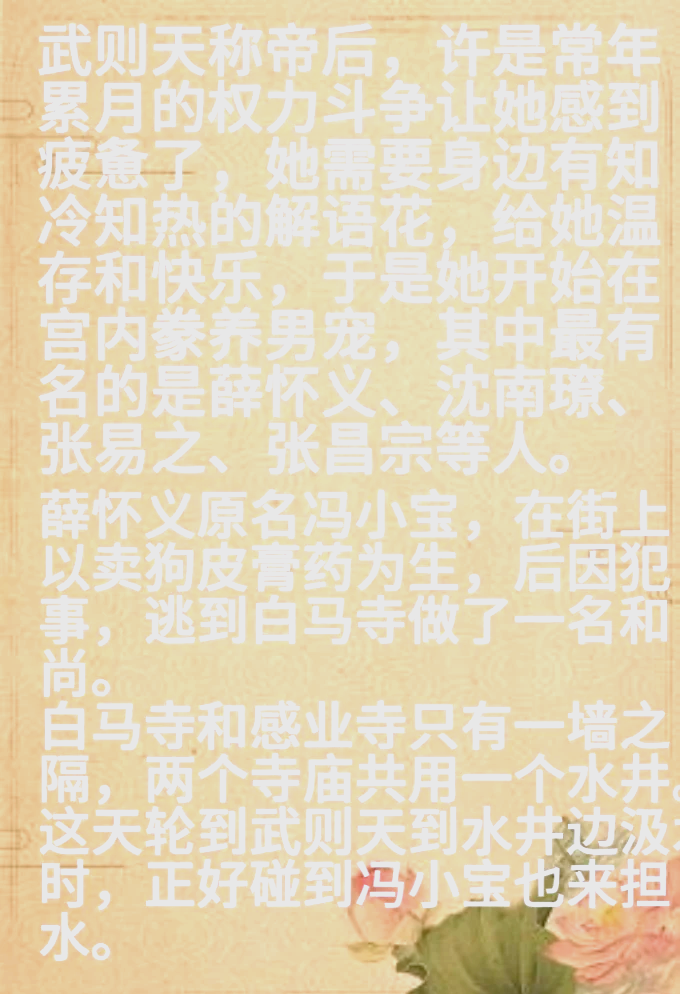 武则天称帝后，许是常年
累月的权力斗争让她感到
疲惫了，她需要身边有知
冷知热的解语花，给她温
存和快乐，于是她开始在
宫内豢养男宠，其中最有
名的是薛怀义、沈南璙、
张易之、张昌宗等人。
薛怀义原名冯小宝，在街上
以卖狗皮膏药为生，后因犯
事，逃到白马寺做了一名和
尚。
白马寺和感业寺只有一墙之
隔，两个寺庙共用一个水井。
这天轮到武则天到水井边汲水
时，正好碰到冯小宝也来担
水。